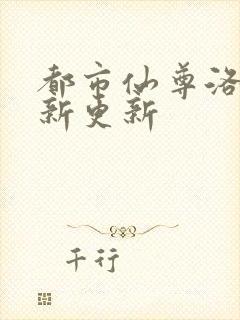 都市仙尊洛
新更新
千行